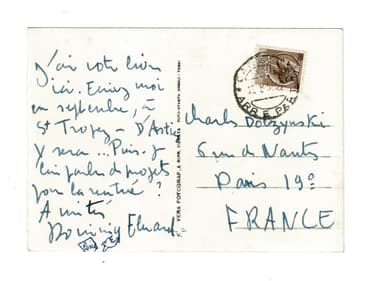 J'ai votre livre
ici. Ecrivez moi
en septembre, à
St Tropez – D'Astier
y sera... Puis-je
lui parler de projets
pour la rentrée ?
Amitiés
Dominique Eluard
VERA FOTOGRAFIA
Charles Dobzynski
6 rue de Nantes
Paris 19e
FRANCE
ARR. E PAR